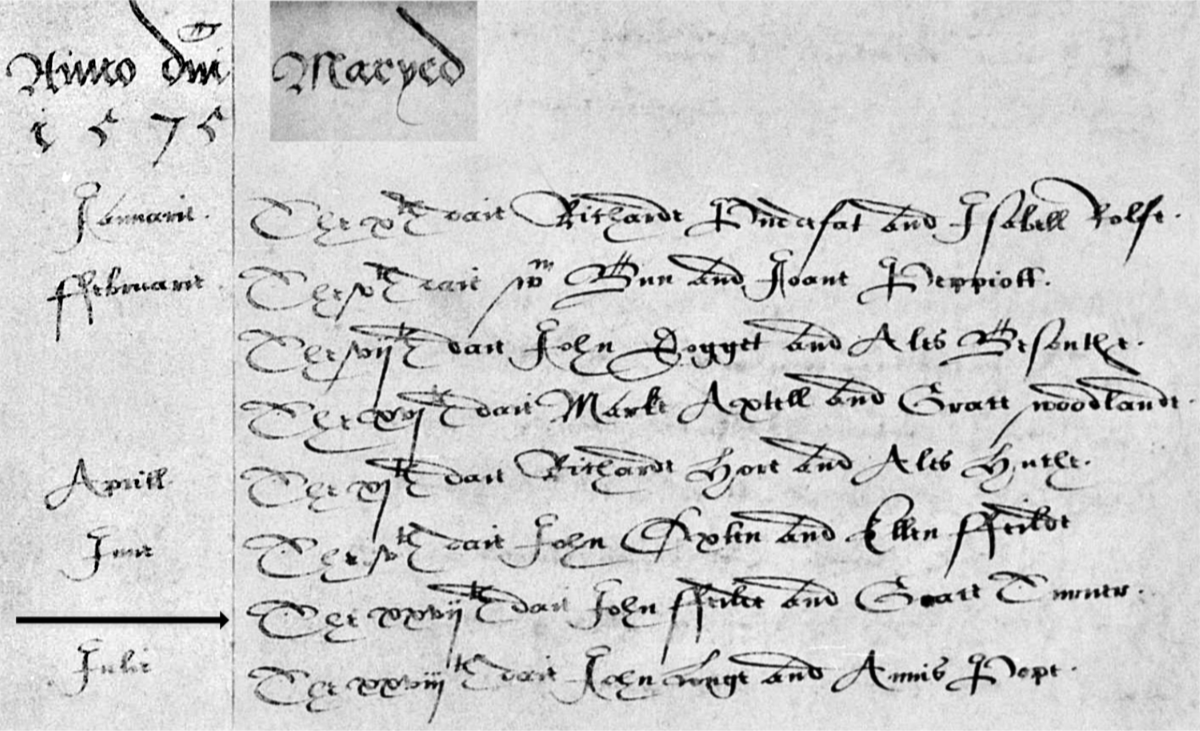 Anno dni Maryed
1575
Januarie. The xth daie Richarde Pudefat and Isabell Rolfe.
ffebruarie The vth daie wm Gun and Joane Peppiott.
The viith daie John Dogget and Ales
The xvjth daie Marke Axtell and Grace woodlande.
Aprill The vjth daie Richarde Hore and Ales
June The vth daie John and Ellen ffeilde
The xxvijth daie John ffeilde and Grace Turner.
Julie The xxviijth daie John longe and Annis Pope.